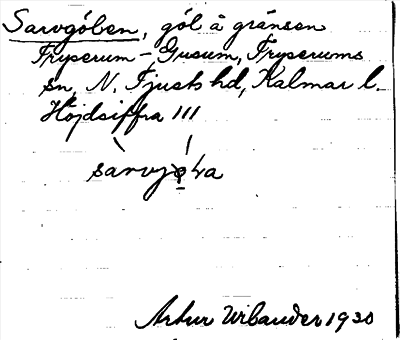 Sarvgölen, göl å gränsen
Fryserum - Gusum, Fryserums
sn, N. Tjusts hd, Kalmar l.
Höjdsiffra 111
sarvjola
Artur Wilander 1930